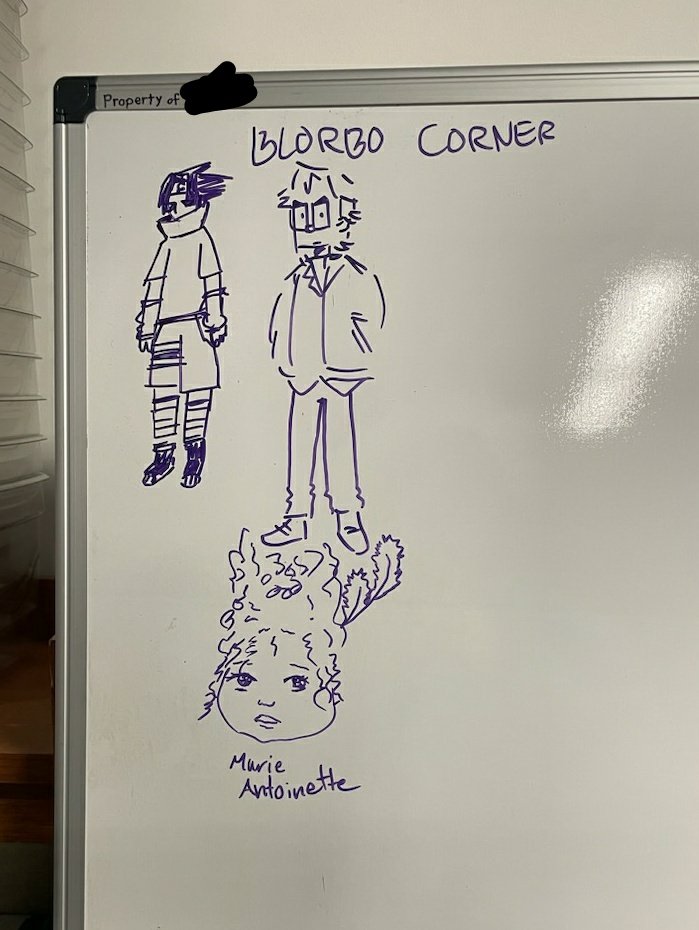 Property of
BLORBO CORNER
Marie
Antoinette